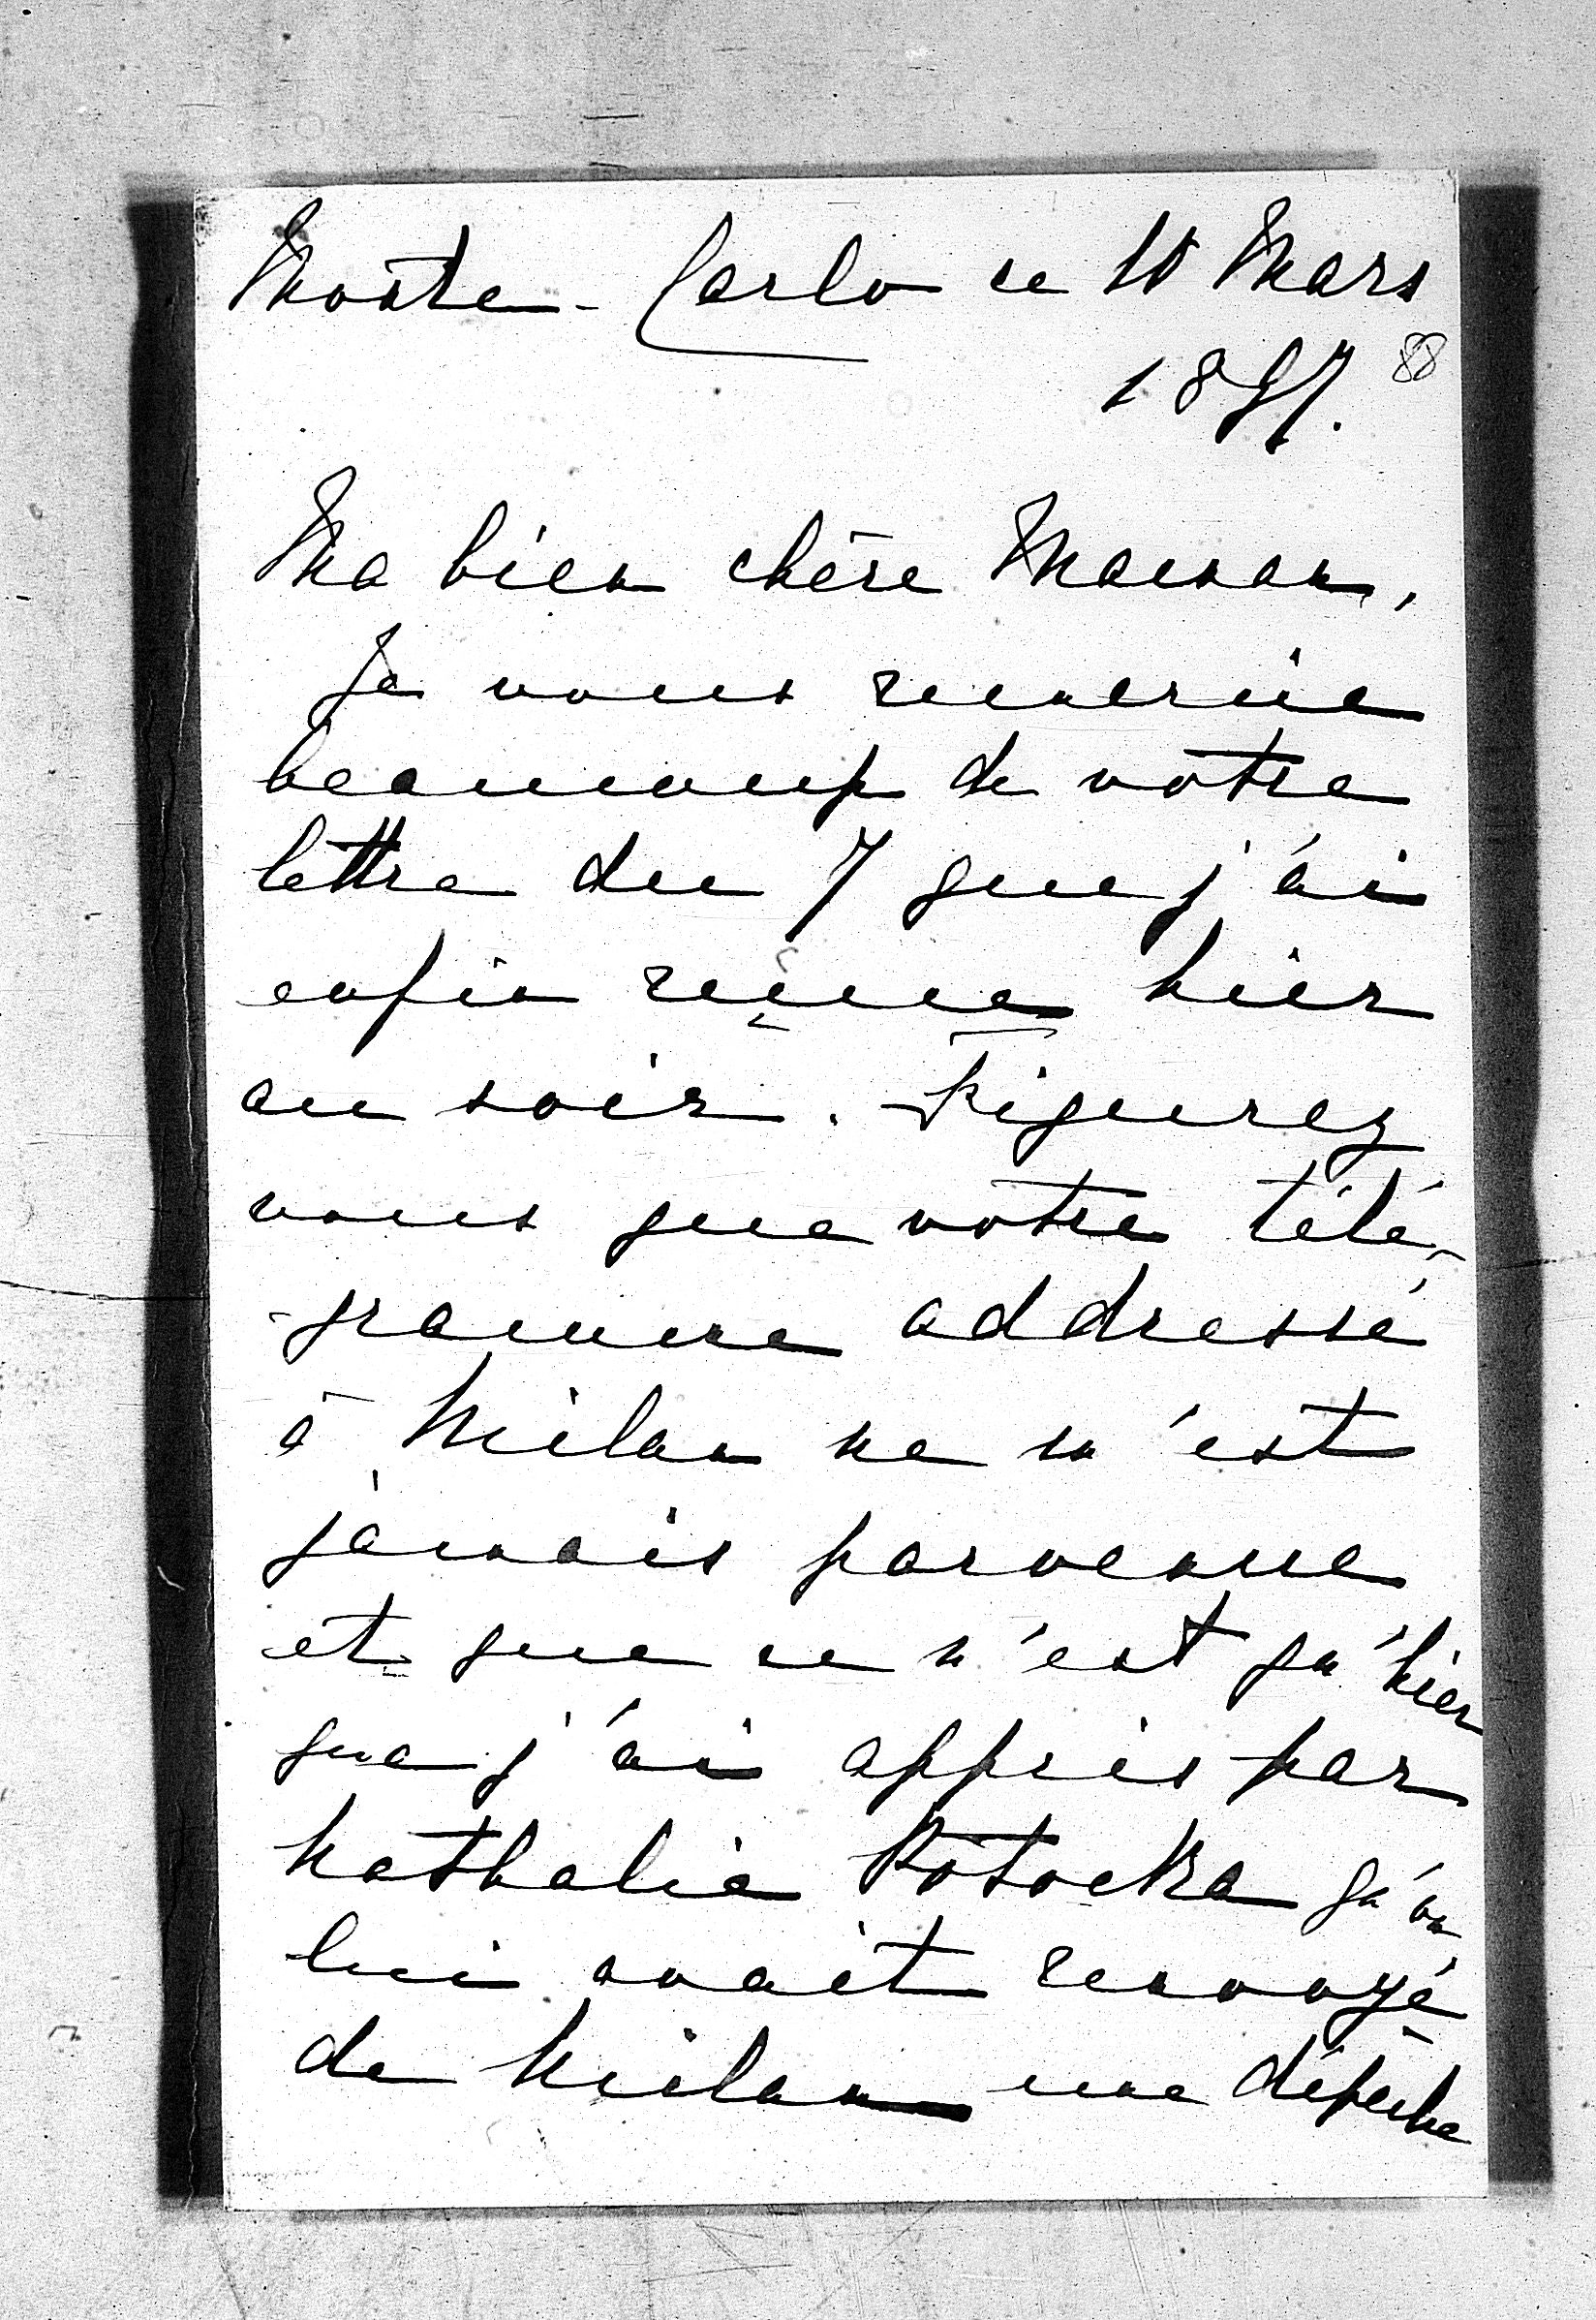 Monte-Carlo ce 10 Mars
1897. 88
Ma bien chère Maman,
Je vous remercie
beaucoup de votre
lettre du 7 que j'ai
enfin reçue hier
au soir. Figurez
vous que votre télé-
-gramme addressé
à Milan ne m'est
jamais parvenue
et que ce n'est qu'hier
que j'ai appris par
Nathalie Potocka qu'on
lui avait renvoyé
de Milan une dépêche